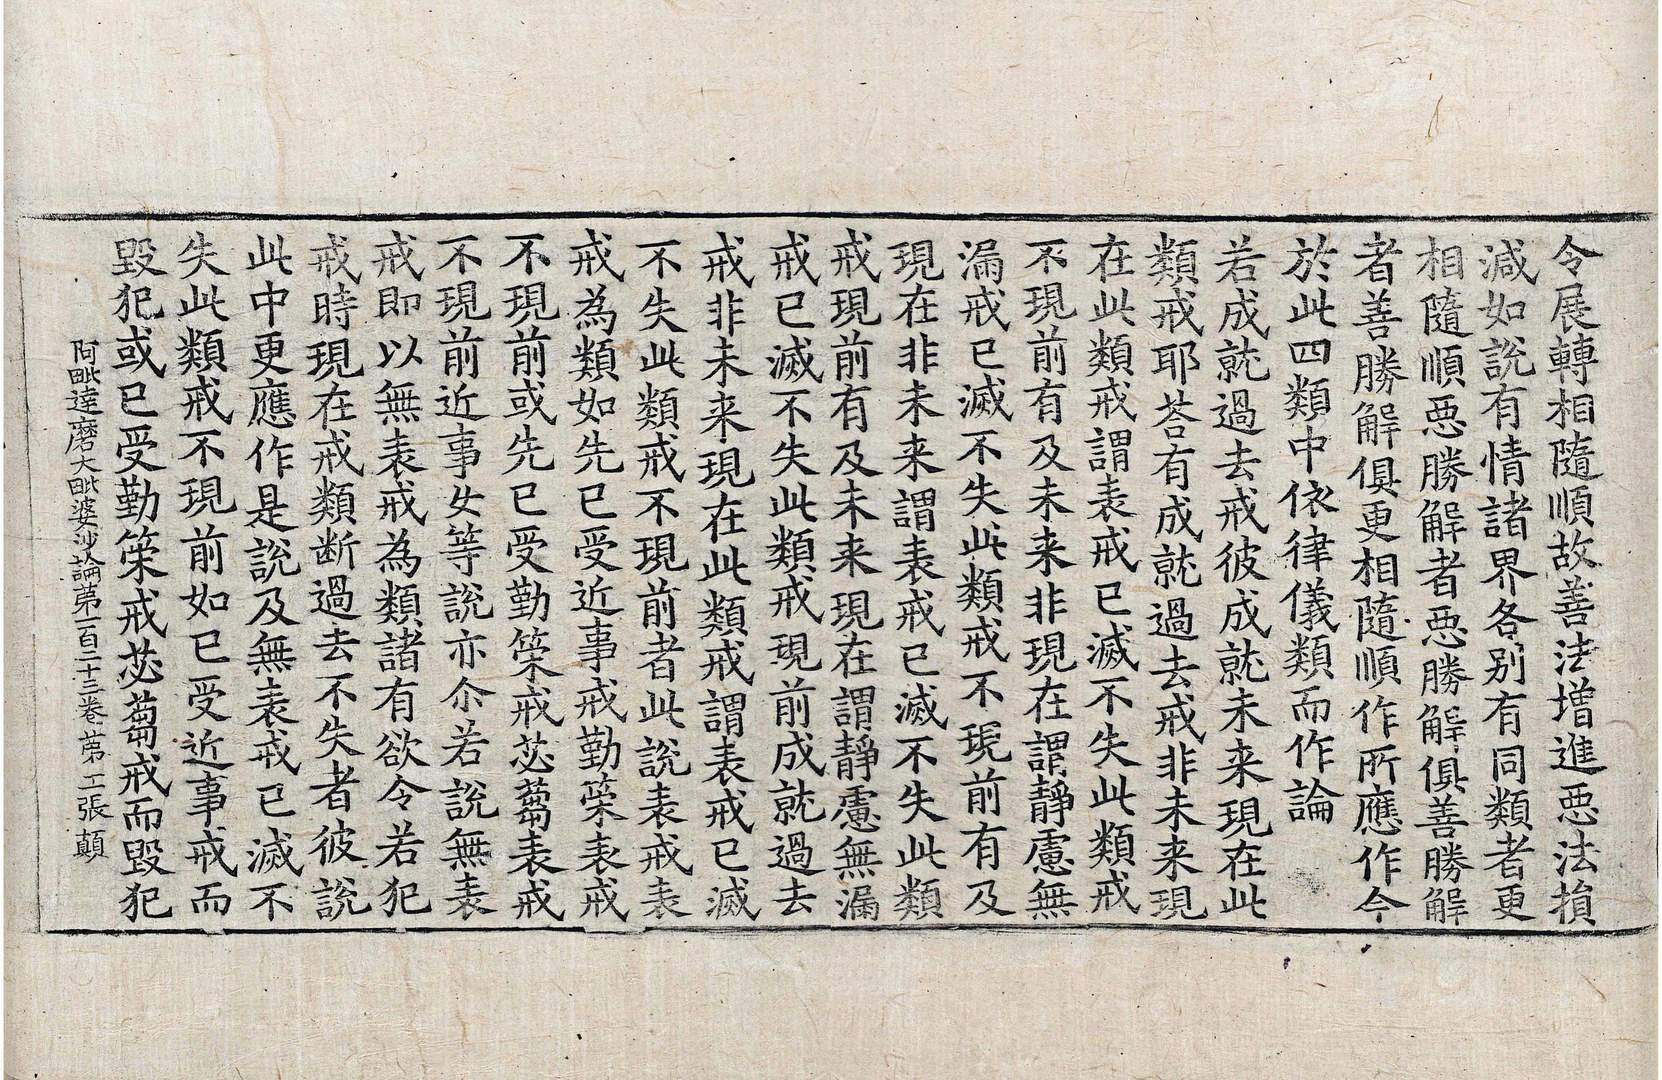 令展轉相隨順故善法增進惡法損
減如說有情諸界各別有同類者更
相隨順惡勝解者惡勝解俱善勝解
者善勝解俱更相隨順作所應作今
於此四類中依律儀類而作論
若成就過去戒彼成就未来現在此
類戒耶荅有成就過去戒非未来現
在此類戒謂表戒已滅不失此類戒
不現前有及未来非現在謂靜慮無
漏戒已滅不失此類戒不現前有及
現在非未来謂表戒已滅不失此類
戒現前有及未来現在謂靜慮無漏
戒已滅不失此類戒現前成就過去
戒非未来現在此類戒謂表戒已滅
不失此類戒不現前者此說表戒表
戒為類如先已受近事戒勤策表戒
不現前或先已受勤策戒苾蒭表戒
不現前近事女等說亦尒若說無表
戒即以無表戒為類諸有欲令若犯
戒時現在戒類断過去不失者彼說
此中更應作是說及無表戒已滅不
失此類戒不現前如已受近事戒而
毀犯或已受勤策戒苾蒭戒而毀犯
阿毗達磨大毗婆沙論第一百二十三卷 第二張 顛